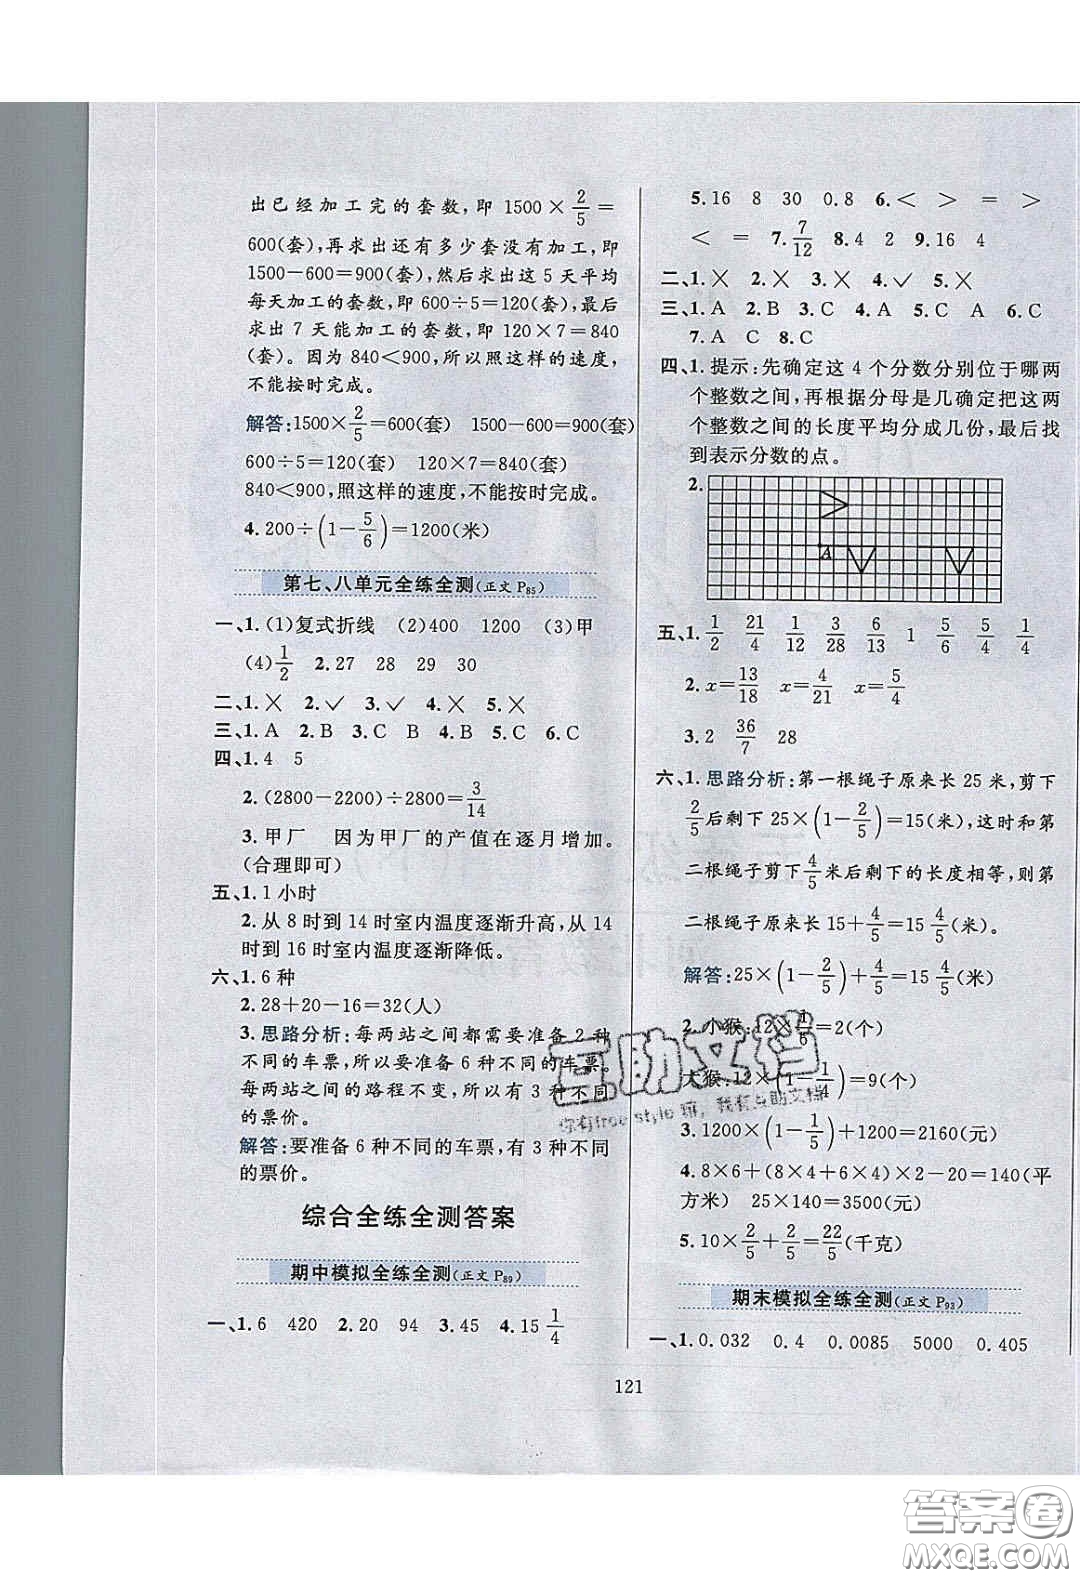 出已经加工完的套数,即 1500×2/5=
600(套),再求出还有多少套没有加工,即
1500-600=900(套),然后求出这 5 天平均
每天加工的套数,即 600÷5=120(套),最后
求出 7 天能加工的套数,即 120×7=840
(套)。因为 840<900,所以照这样的速度,
不能按时完成。
解答:1500×2/5=600(套) 1500-600=900(套)
600÷5=120(套) 120×7=840(套)
840<900,照这样的速度,不能按时完成。
4.200÷(1-5/6)=1200(米)
第七、八单元全练全测(正文 P85)
一、1.(1)复式折线 (2)400 1200 (3)甲
(4)1/2 2.27 28 29 30
二、1.× 2.✓ 3.✓ 4.× 5.×
三、1.A 2.B 3.C 4.B 5.C 6.C
四、1.4 5
2.(2800-2200)÷2800=3/14
3.甲厂 因为甲厂的产值在逐月增加。
(合理即可)
五、1.1 小时
2.从 8 时到 14 时室内温度逐渐升高,从 14
时到 16 时室内温度逐渐降低。
六、1.6 种
2.28+20-16=32(人)
3.思路分析:每两站之间都需要准备 2 种
不同的车票,所以要准备 6 种不同的车票。
每两站之间的路程不变,所以有 3 种不同
的票价。
解答:要准备 6 种不同的车票,有 3 种不同
的票价。
综合全练全测答案
期中模拟全练全测(正文 P89)
一、1.6 420 2.20 94 3.45 4.15 1/4
5.16 8 30 0.8 6.< > = >
< = 7.7/12 8.4 2 9.16 4
二、1.× 2.× 3.× 4.✓ 5.×
三、1.A 2.B 3.C 4.A 5.C A 6.C
7.A C 8.C
四、1.提示:先确定这 4 个分数分别位于哪两
个整数之间,再根据分母是几确定把这两
个整数之间的长度平均分成几份,最后找
到表示分数的点。
2.
A
五、1.1/2 21/4 1/12 3/28 6/13 1 5/6 5/4 1/4
2.x=13/18 x=4/21 x=5/4
3.2 36/7 28
六、1.思路分析:第一根绳子原来长 25 米,剪下
2/5后剩下 25×(1-2/5)=15(米),这时和第
二根绳子剪下4/5米后剩下的长度相等,则第
二根绳子原来长 15+4/5=15 4/5(米)。
解答:25×(1-2/5)+4/5=15 4/5(米)
2.小猴:12×1/6=2(个)
大猴:12×(1-1/4)=9(个)
3.1200×(1-1/5)+1200=2160(元)
4.8×6+(8×4+6×4)×2-20=140(平
方米) 25×140=3500(元)
5.10×2/5+2/5=22/5(千克)
期末模拟全练全测(正文 P93)
一、1.0.032 0.4 0.0085 5000 0.405
121
互助文档
你有free style 嘛,我有互助文档
答案卷
MXQE.COM